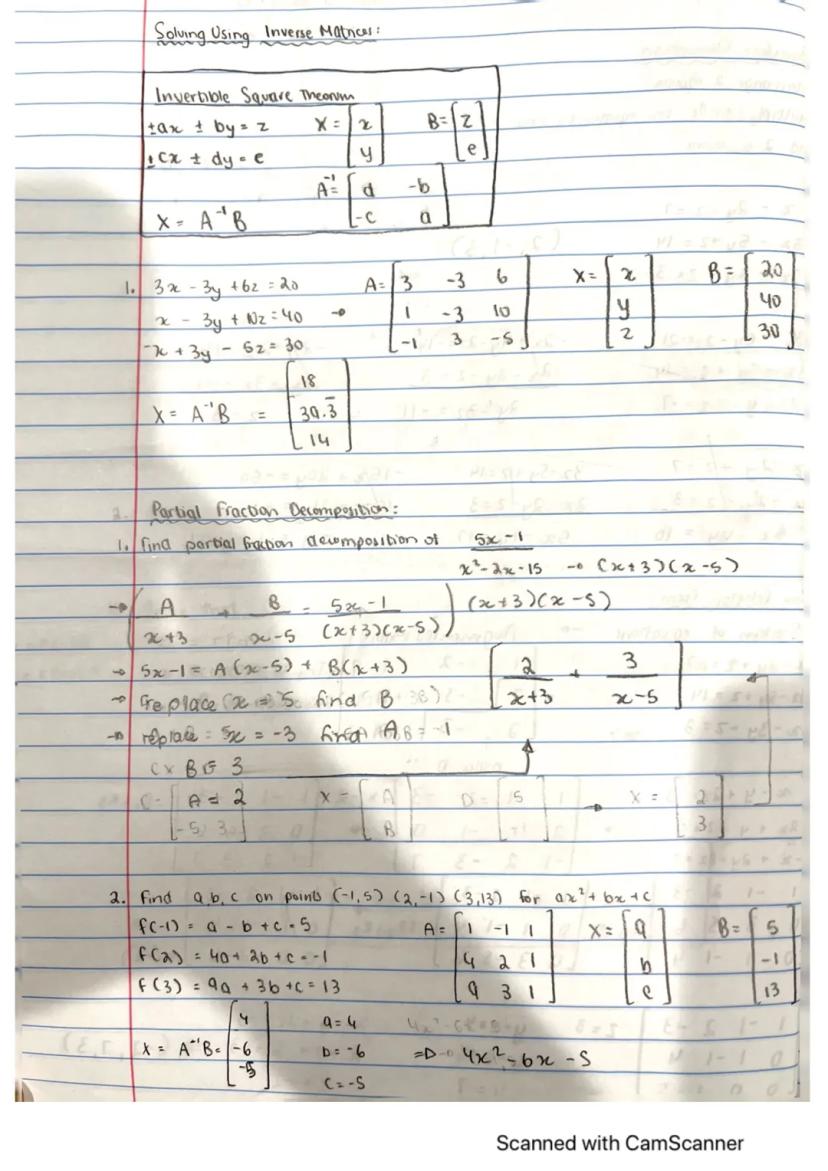 Solving Using Inverse Matrices:
Invertible Square Theorem
±ax ± by = z X = [x y] B = [z e]
±cx ± dy = e
A⁻¹ = [d -b -c a]
X = A⁻¹B
1. 3x - 3y + 6z = 20 A = [3 -3 6 X = [x B = [20
x - 3y + 10z = 40 → 1 -3 10 y 40
-x + 3y - 5z = 30 -1 3 -5] z] 30]
X = A⁻¹B = [18 39.3̅ 14]
2. Partial Fraction Decomposition:
1. find partial fraction decomposition of 5x - 1 / x² - 2x - 15 → (x+3)(x-5)
→ (A / x+3 + B / x-5 = 5x - 1 / (x+3)(x-5)) (x+3)(x-5)
→ 5x - 1 = A(x-5) + B(x+3) [2 / x+3 + 3 / x-5]
→ replace x = 5 find B
→ replace = x = -3 find A
B = 3
A = 2 X = [A B] [15 → X = [2 3]
2. Find a, b, c on points (-1,5) (2,-1) (3,13) for ax² + bx + c
f(-1) = a - b + c = 5 A = [1 -1 1 X = [a B = [5
f(2) = 4a + 2b + c = -1 4 2 1 b -1
f(3) = 9a + 3b + c = 13 9 3 1] c] 13]
X = A⁻¹B = [4 -6 -5] a = 4
b = -6 ⇒ 4x² - 6x - 5
c = -5
Scanned with CamScanner